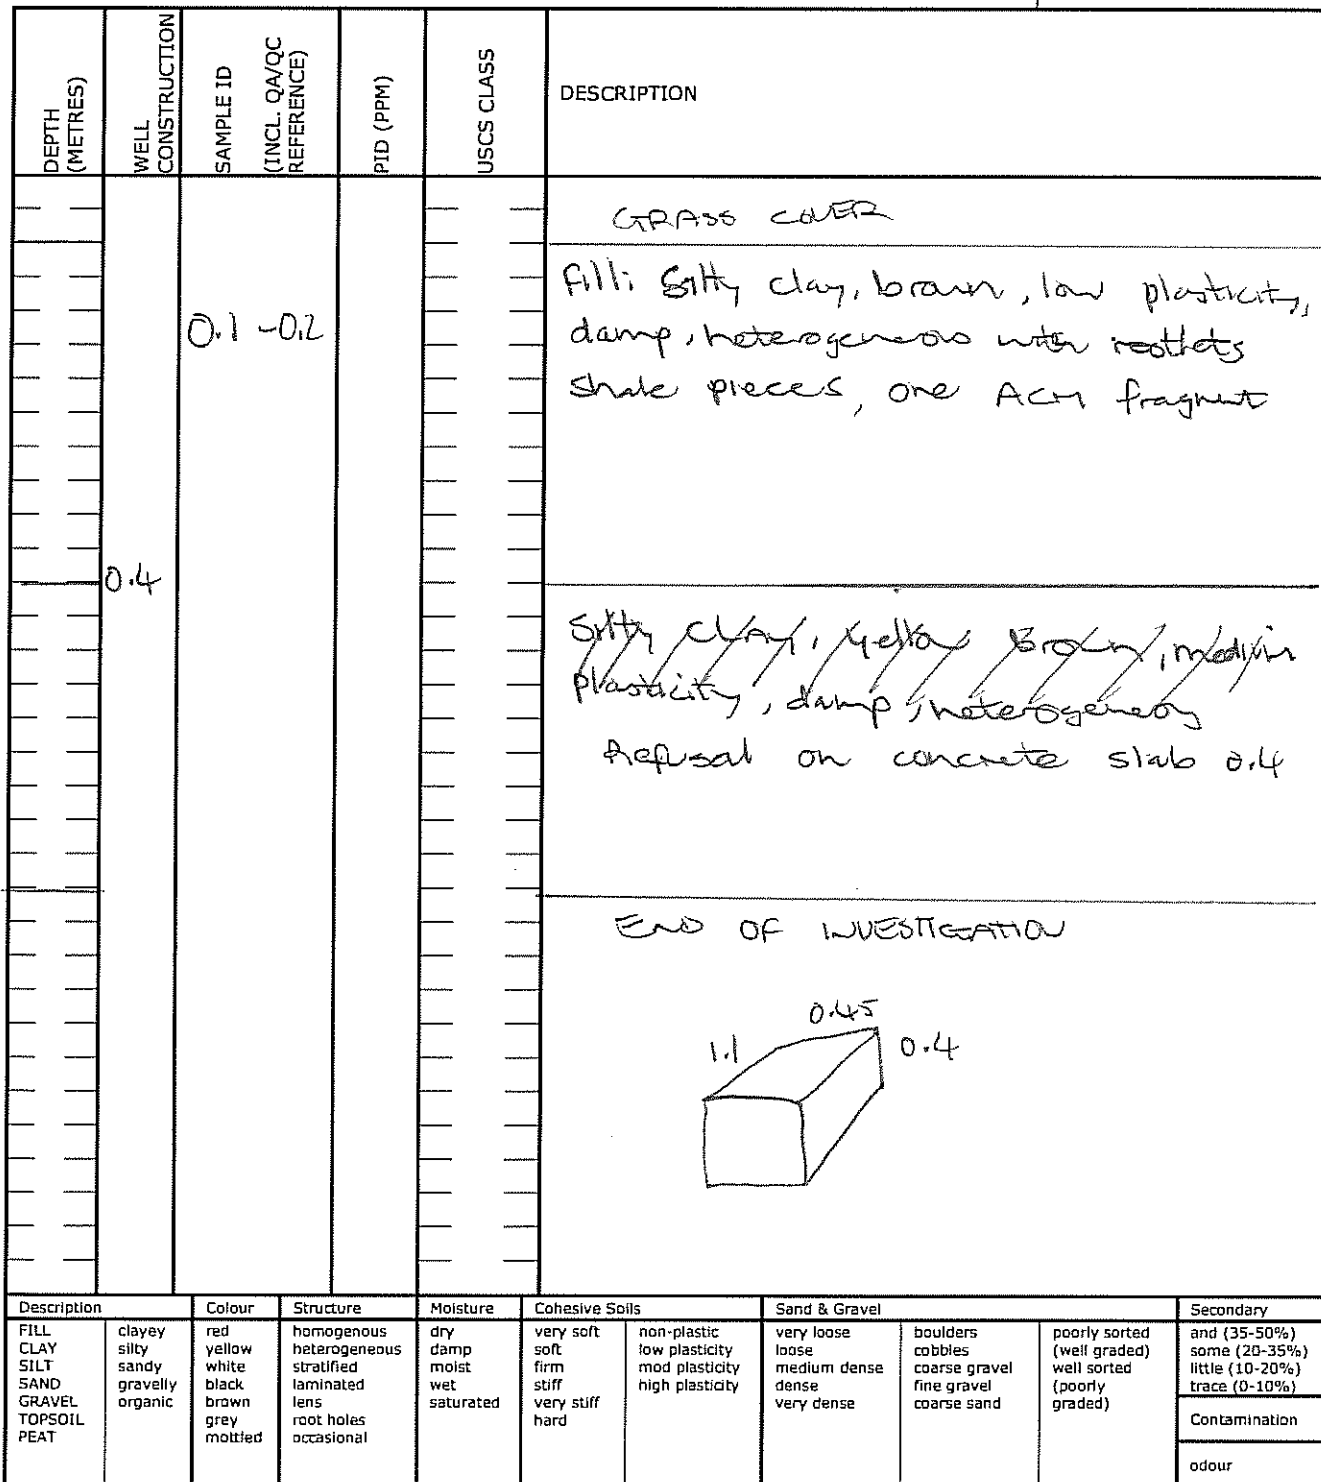 DEPTH
(METRES)
WELL
CONSTRUCTION
SAMPLE ID
(INCL. QA/QC
REFERENCE)
PID (PPM)
USCS CLASS
DESCRIPTION
GRASS COVER
Fill: Silty clay, brown, low plasticity,
0.1 - 0.2
damp, heterogeneous with rootlets
shale pieces, one ACM fragment
0.4
Silty CLAY, Yellow Brown, medium
plasticity, damp, heterogeneous
Refusal on concrete slab 0.4
END OF INVESTIGATION
0.45
1.1
0.4
Description
Colour
Structure
Moisture
Cohesive Soils
Sand & Gravel
Secondary
FILL
CLAY
SILT
SAND
GRAVEL
TOPSOIL
PEAT
clayey
silty
sandy
gravelly
organic
red
yellow
white
black
brown
grey
mottled
homogenous
heterogeneous
stratified
laminated
lens
root holes
occasional
dry
damp
moist
wet
saturated
very soft
soft
firm
stiff
very stiff
hard
non-plastic
low plasticity
mod plasticity
high plasticity
very loose
loose
medium dense
dense
very dense
boulders
cobbles
coarse gravel
fine gravel
coarse sand
poorly sorted
(well graded)
well sorted
(poorly
graded)
and (35-50%)
some (20-35%)
little (10-20%)
trace (0-10%)
Contamination
odour